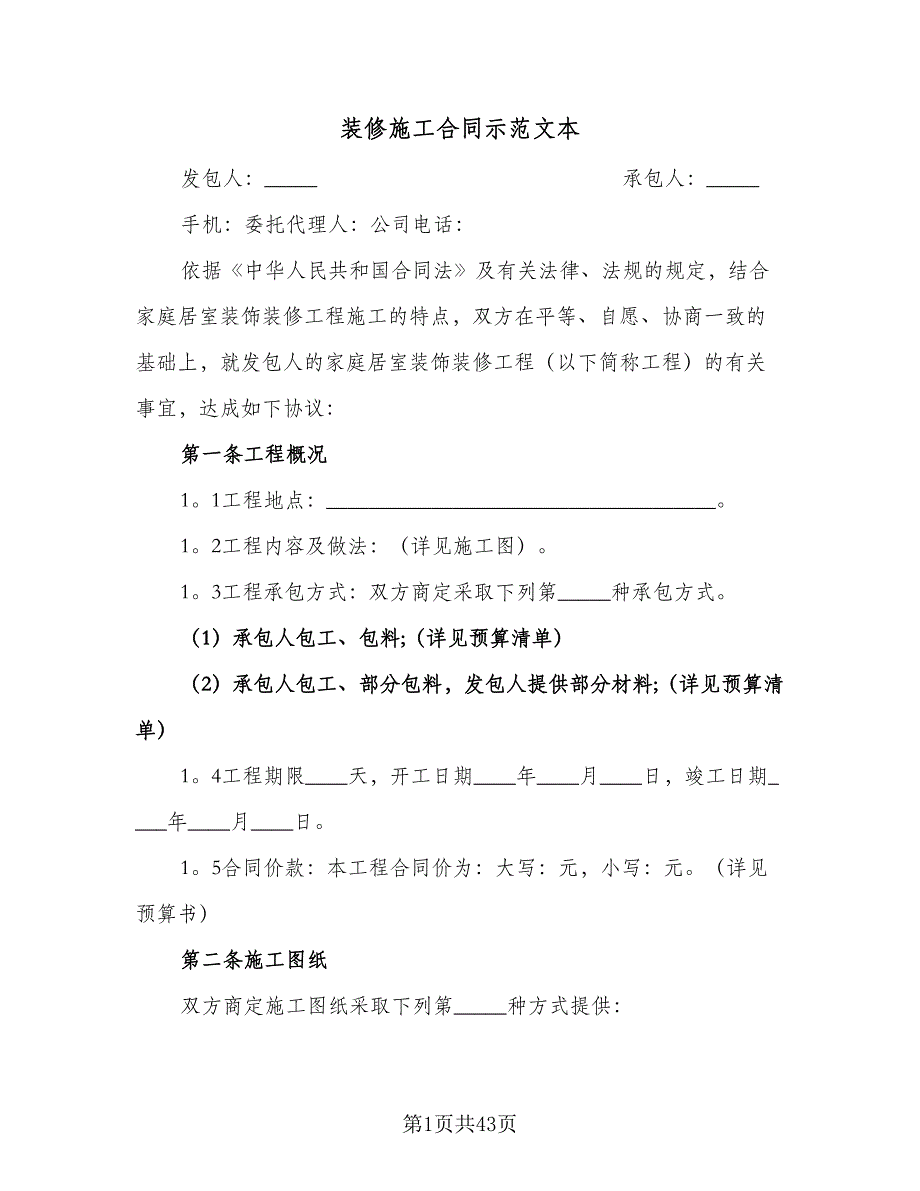 装修施工合同示范文本
发包人：_____ 承包人：_____
手机：委托代理人：公司电话：
依据《中华人民共和国合同法》及有关法律、法规的规定，结合
家庭居室装饰装修工程施工的特点，双方在平等、自愿、协商一致的
基础上，就发包人的家庭居室装饰装修工程（以下简称工程）的有关
事宜，达成如下协议：
第一条工程概况
1。1工程地点：_____________________________________。
1。2工程内容及做法：（详见施工图）。
1。3工程承包方式：双方商定采取下列第_____种承包方式。
（1）承包人包工、包料;（详见预算清单）
（2）承包人包工、部分包料，发包人提供部分材料;（详见预算清
单）
1。4工程期限____天，开工日期____年____月____日，竣工日期_
___年____月____日。
1。5合同价款：本工程合同价为：大写：元，小写：元。（详见
预算书）
第二条施工图纸
双方商定施工图纸采取下列第_____种方式提供：
第1页共43页